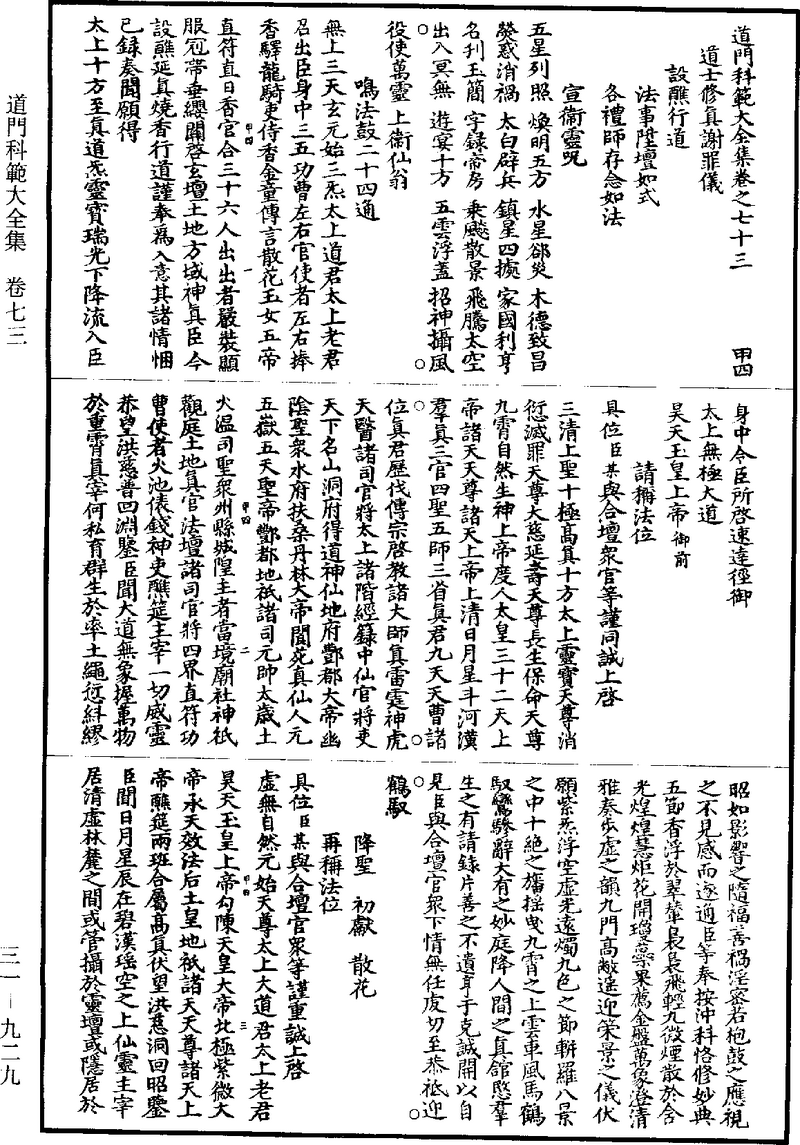 道門科範大全集　卷七三
三一－九二九
道門科範大全集卷之七十三　甲四
道士修真謝罪儀
設醮行道
法事陞壇如式
各禮師存念如法
宣衛靈呪
五星列照　煥明五方　水星郤災　木德致昌
熒惑消禍　太白辟兵　鎮星四據　家國利亨
名刋玉簡　字錄帝房　乘飈散景　飛騰太空
出入冥無　遊宴十方　五雲浮蓋　招神攝風
役使萬靈　上衛仙翁
鳴法鼓二十四通
無上三天玄元始三炁太上道君太上老君
召出臣身中三五功曹左右官使者左右捧
香驛龍騎吏侍香金童傳言散花玉女五帝
直符直日香官合三十六人出出者嚴裝顯
服冠帶垂纓關啓玄壇土地方域神真臣今
設醮延真燒香行道謹奉為入意其諸情悃
已録奏聞願得
太上十方至真道炁靈寶瑞光下降流入臣
身中令臣所啓速達徑御
太上無極大道
昊天玉皇上帝御前
請稱法位
具位臣某與合壇衆官等謹同誠上啓
三清上聖十極高真十方太上靈寶天尊消
愆滅罪天尊大慈延壽天尊長生保命天尊
九霄自然生神上帝度人太皇三十二天上
帝諸天天尊諸天上帝上清日月星斗河漢
羣真三官四聖五師三首真君九天天曹諸
位真君歷代傳宗啓教諸大師真雷霆神虎
天醫諸司官將太上諸階經籙中仙官將吏
天下名山洞府得道神仙地府酆都大帝幽
陰聖衆水府扶桑丹林大帝閬苑真仙人元
五嶽五天聖帝酆都地祇諸司元帥太歲土
火瘟司聖衆州縣城隍主者當境廟社神祇
觀庭土地真官法壇諸司官將四界直符功
曹使者火池俵錢神吏醮筵主宰一切威靈
恭望洪慈普回淵鑒臣聞大道無象握萬物
於重霄真宰何私育群生於率土繩愆糾繆
昭如影響之隨福善禍淫密若枹鼓之應視
之不見感而遂通臣等奉按沖科恪修妙典
五節香浮於翠輦裊裊飛輕九微煙散於含
光煌煌慧炬花開瓊蘂果薦金盤萬象澄清
雅奏步虛之韻九門高敞遥迎策景之儀伏
願紫炁浮空虛光遠燭九色之節駢羅八景
之中十絕之旛揺曳九霄之上雲車風馬鶴
馭鸞驂辭大有之妙庭降人間之真館愍羣
生之有請錄片善之不遺再于克誠開以自
見臣與合壇官衆下情無任虔切至恭祗迎
鶴馭
降聖　初獻　散花
再稱法位
具位臣某與合壇官衆等謹重誠上啓
虛無自然元始天尊太上大道君太上老君
昊天玉皇上帝勾陳天皇大帝北極紫微大
帝承天效法后土皇地祇諸天天尊諸天上
帝醮筵兩班合屬高真伏望洪慈洞回昭鑒
臣聞日月星辰在碧漢瑶空之上仙靈主宰
居清虛林麓之間或管攝於靈壇或隱居於